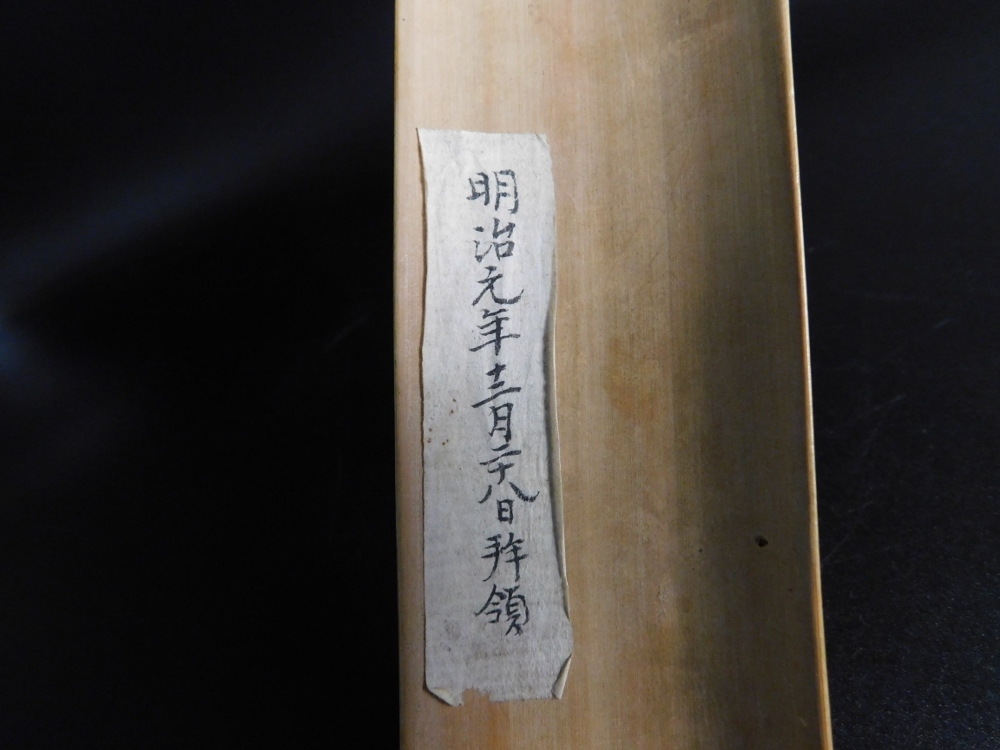 明治元年十二月二十八日拝領